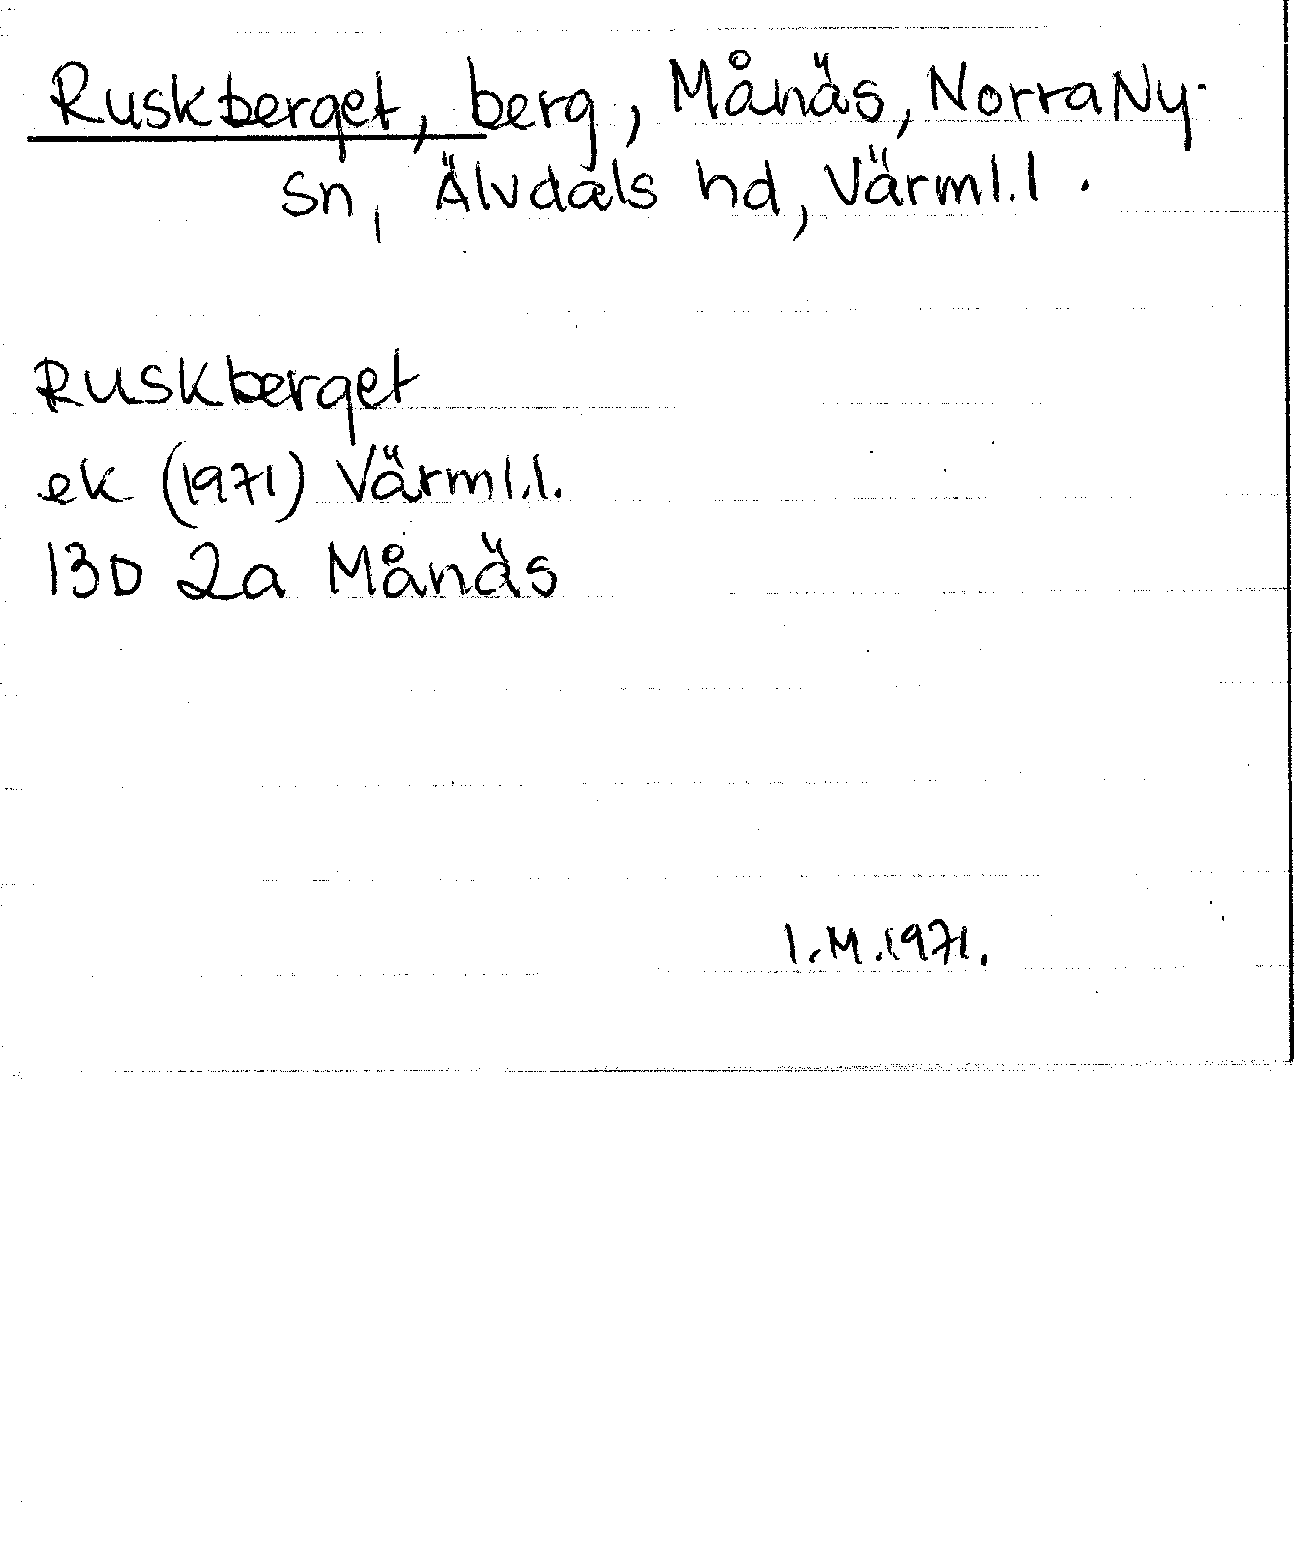 Ruskberget, berg, Månäs, Norra Ny
Sn, Älvdals hd, Värml.l.
Ruskberget
ek (1971) Värml.l.
13D 2a Månäs
I.M.1971.